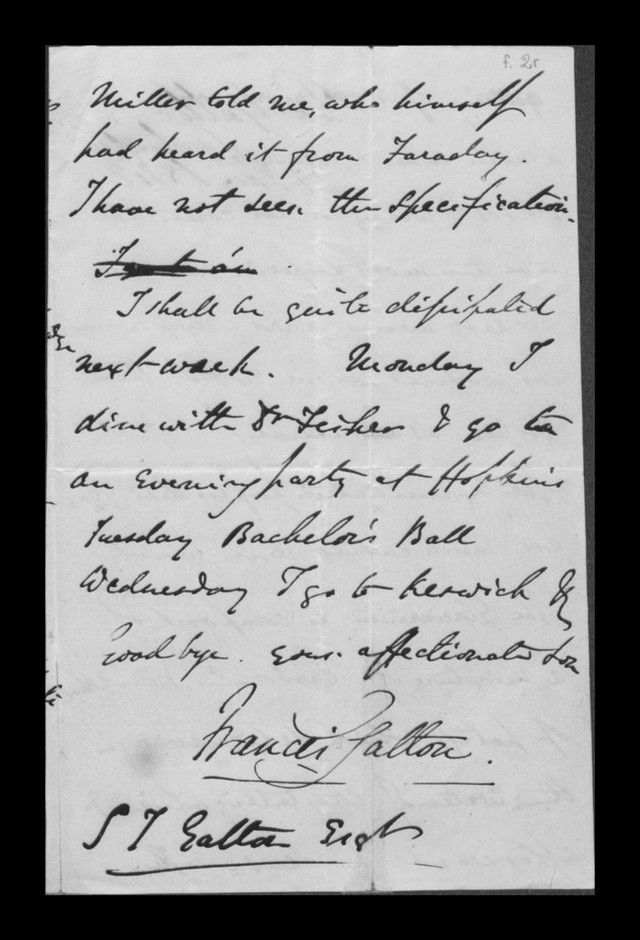 f. 2r
Miller told me, who himself
had heard it from Faraday.
I have not seen the Specification.
I shall be quite dissipated
next week. Monday I
dine with Dr Fisher & go to
an Evening party at Hopkins
Tuesday Bachelor's Ball
Wednesday I go to Keswick &c
Goodbye. your affectionate Son
Francis Galton.
S T Galton Esqr